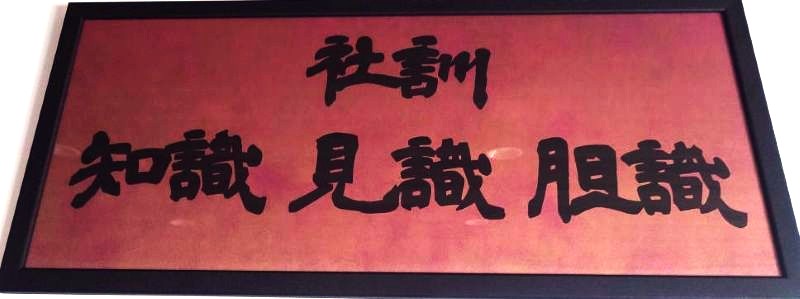 社訓
知識 見識 胆識